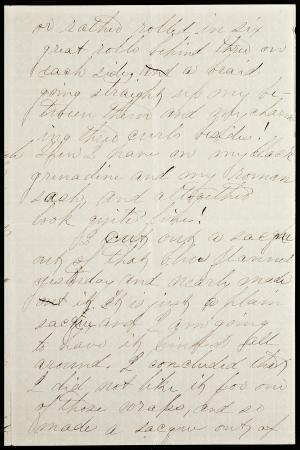 or rather rolled in six
great rolls behind three on
each side, and a beard
going straight up my be-
tween them and my charm-
ing three curls besides!
Then I have on my black
grenadine and my Roman
sash, and altogether
look quite fine!
I cut out a sacque
out of that blue flannel
yesterday and nearly made
it. It is just a plain
sacque and I am going
to have it all
around. I concluded that
I did not like it for one
of those wraps, and so
made a sacque out of